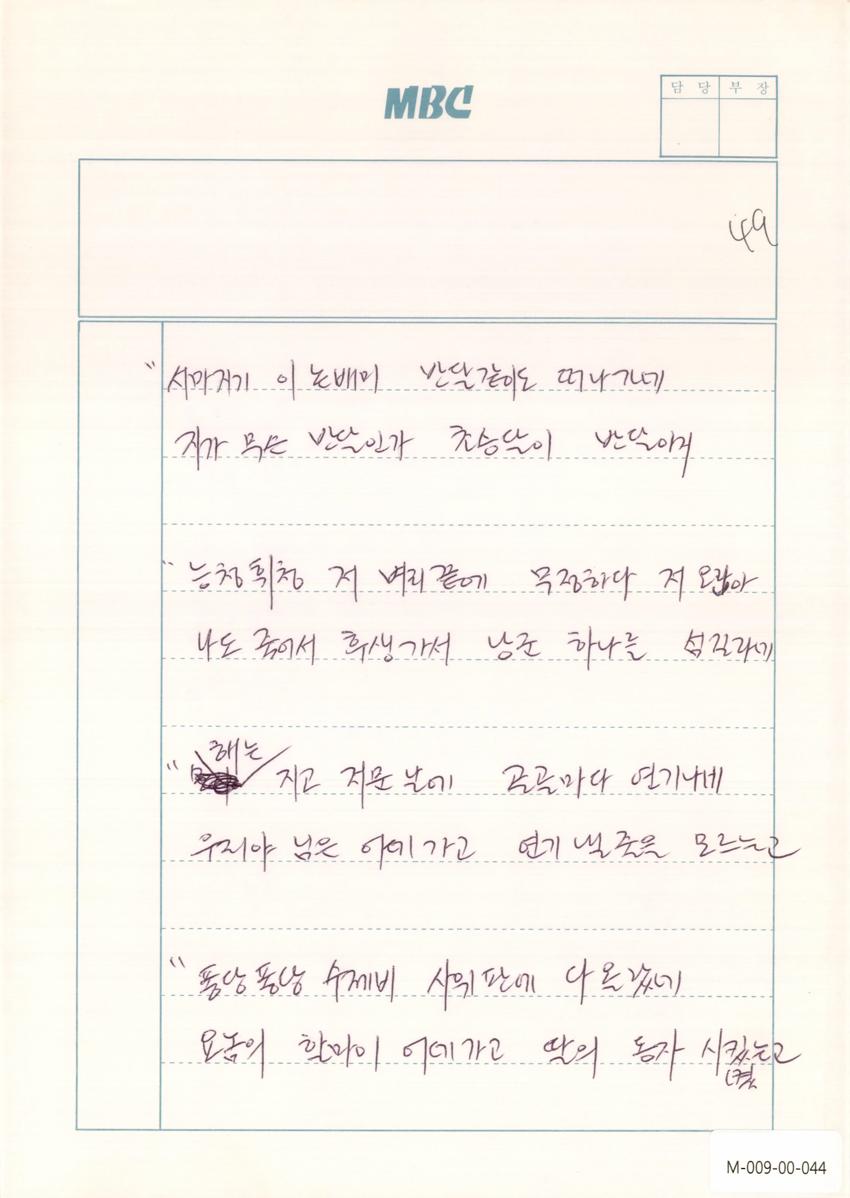 MBC
담당 부장
49
" 서마지기 이 논배미 반달같이도 떠나가네
지가 무슨 반달인가 초승달이 반달이지
" 능청휘청 저 벼리끝에 무정하다 저 오랍아
나도 죽어서 후생가서 낭군 하나를 섬길라네
" 해는 지고 저문 날에 골골마다 연기나네
우지야 님은 어데 가고 연기 낼 줄을 모르는고
" 퐁당퐁당 수제비 사위 판에 다 올랐네
요놈의 할마이 어데가고 딸의 동자 시킸는고
켰
M-009-00-044